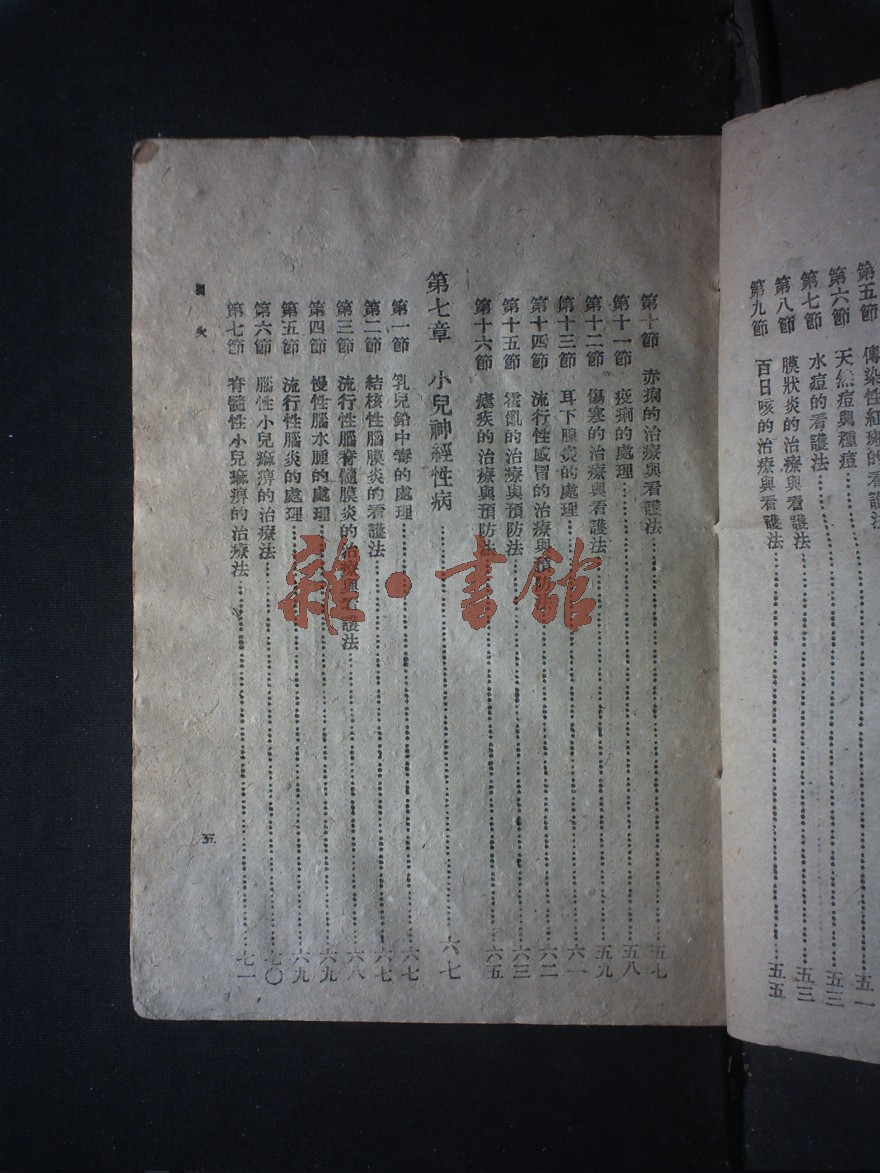 第五節 傳染性紅斑的看護法 五一
第六節 天然痘與種痘 五三
第七節 水痘的看護法 五三
第八節 膜狀炎的治療與看護法
第九節 百日咳的治療與看護法 五五
第十節 赤痢的治療與看護法 五七
第十一節 疫痢的處理 五八
第十二節 傷寒的治療與看護法 五九
第十三節 耳下腺炎的處理 六一
第十四節 流行性感冒的治療與預防法 六二
第十五節 霍亂的治療與預防法 六三
第十六節 瘧疾的治療與預防法 六五
第七章 小兒神經性病 六七
第一節 乳兒鉛中毒的處理 六七
第二節 結核性腦膜炎的看護法 六七
第三節 流行性腦脊髓膜炎的治療與看護法 六八
第四節 慢性腦水腫的處理 六九
第五節 流行性腦炎的處理 六九
第六節 腦性小兒痲痹的治療法 七〇
第七節 脊髓性小兒痲痹的治療法 七一
目次
五
雜·書館